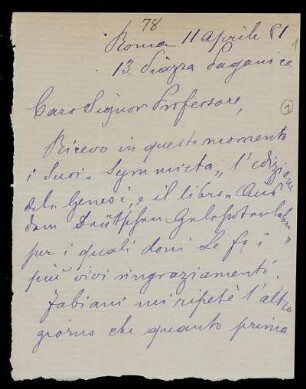 78
Roma 11 Aprile 81
13. Piazza Paganica
Caro Signor Professore,
1
Ricevo in questi momento
i Suoi „Symmicta„ l'edizione
della Genesi, e il libro „Aus
dem Deütschen Gelehrtenleben„
per i quali doni Le fo i
più vivi ringraziamenti.
Fabiani mi ripetè l'altro
giorno che quanto prima